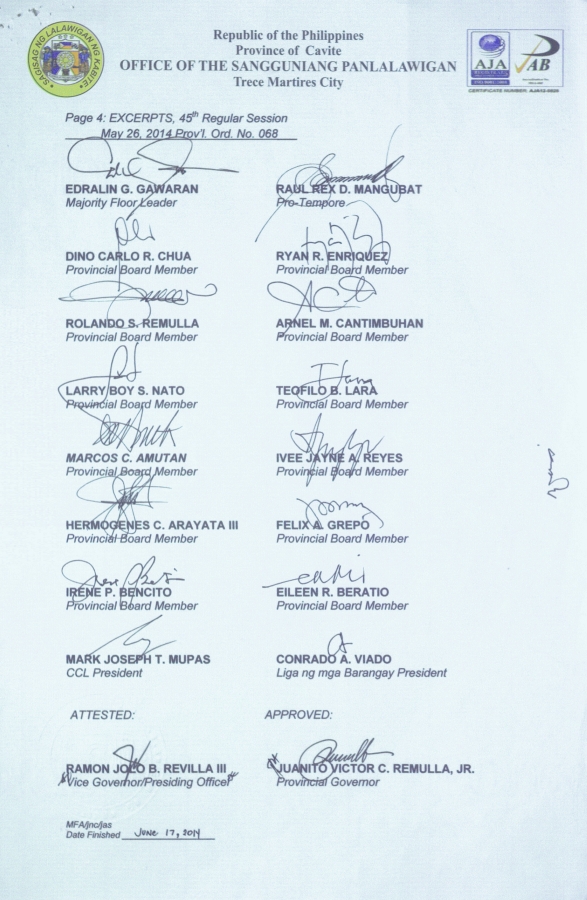 Republic of the Philippines
Province of Cavite
OFFICE OF THE SANGGUNIANG PANLALAWIGAN
Trece Martires City
SAGISAG NG LALAWIGAN NG KABITE
AJA
PAB
CERTIFICATE NUMBER: AJA02-0020
Page 4: EXCERPTS, 45th Regular Session
May 26, 2014 Prov'l. Ord. No. 068
EDRALIN G. GAWARAN
Majority Floor Leader
RAUL REX D. MANGUBAT
Pro-Tempore
DINO CARLO R. CHUA
Provincial Board Member
RYAN R. ENRIQUEZ
Provincial Board Member
ROLANDO S. REMULLA
Provincial Board Member
ARNEL M. CANTIMBUHAN
Provincial Board Member
LARRY BOY S. NATO
Provincial Board Member
TEOFILO B. LARA
Provincial Board Member
MARCOS C. AMUTAN
Provincial Board Member
IVEE JAYNE A. REYES
Provincial Board Member
HERMOGENES C. ARAYATA III
Provincial Board Member
FELIX A. GREPO
Provincial Board Member
IRENE P. BENCITO
Provincial Board Member
EILEEN R. BERATIO
Provincial Board Member
MARK JOSEPH T. MUPAS
CCL President
CONRADO A. VIADO
Liga ng mga Barangay President
ATTESTED:
APPROVED:
RAMON JOLO B. REVILLA III
Vice Governor/Presiding Officer
JUANITO VICTOR C. REMULLA, JR.
Provincial Governor
MFA/jnc/jas
Date Finished June 17, 2014